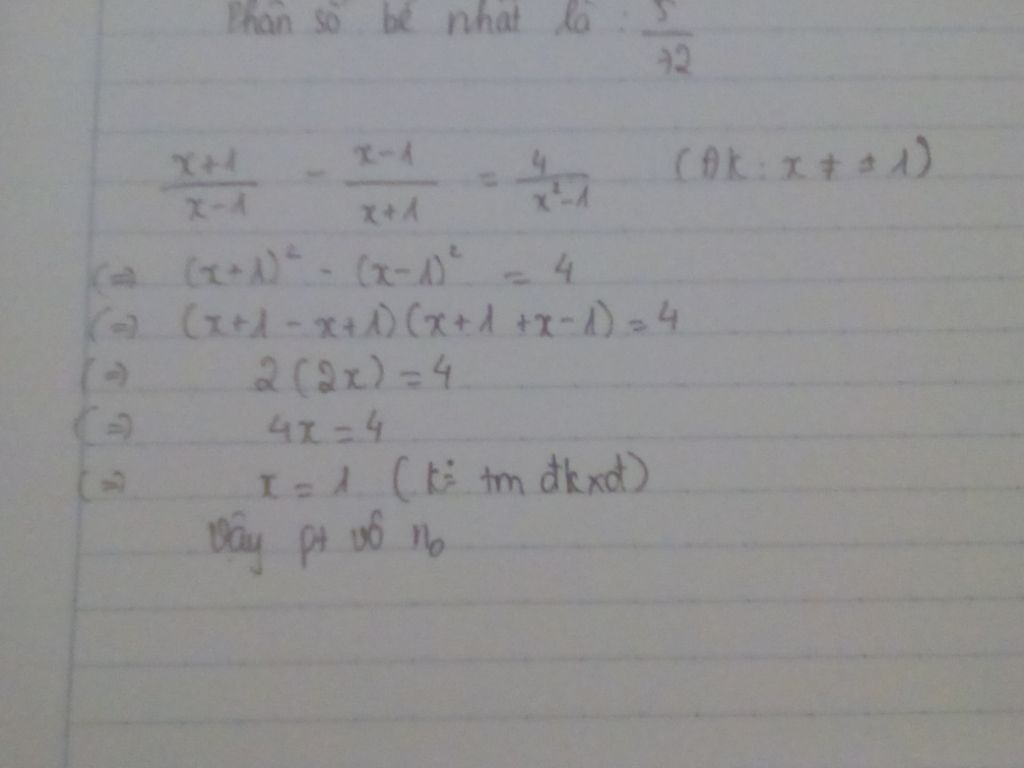 Phân số bé nhất là : 5/72
x+1/x-1 - x-1/x+1 = 4/x²-1 (ĐK: x ≠ ±1)
(=) (x+1)² - (x-1)² = 4
(=) (x+1-x+1)(x+1+x-1) = 4
(=) 2(2x) = 4
(=) 4x = 4
(=) x = 1 (k: tm đkxđ)
Vậy pt vô no